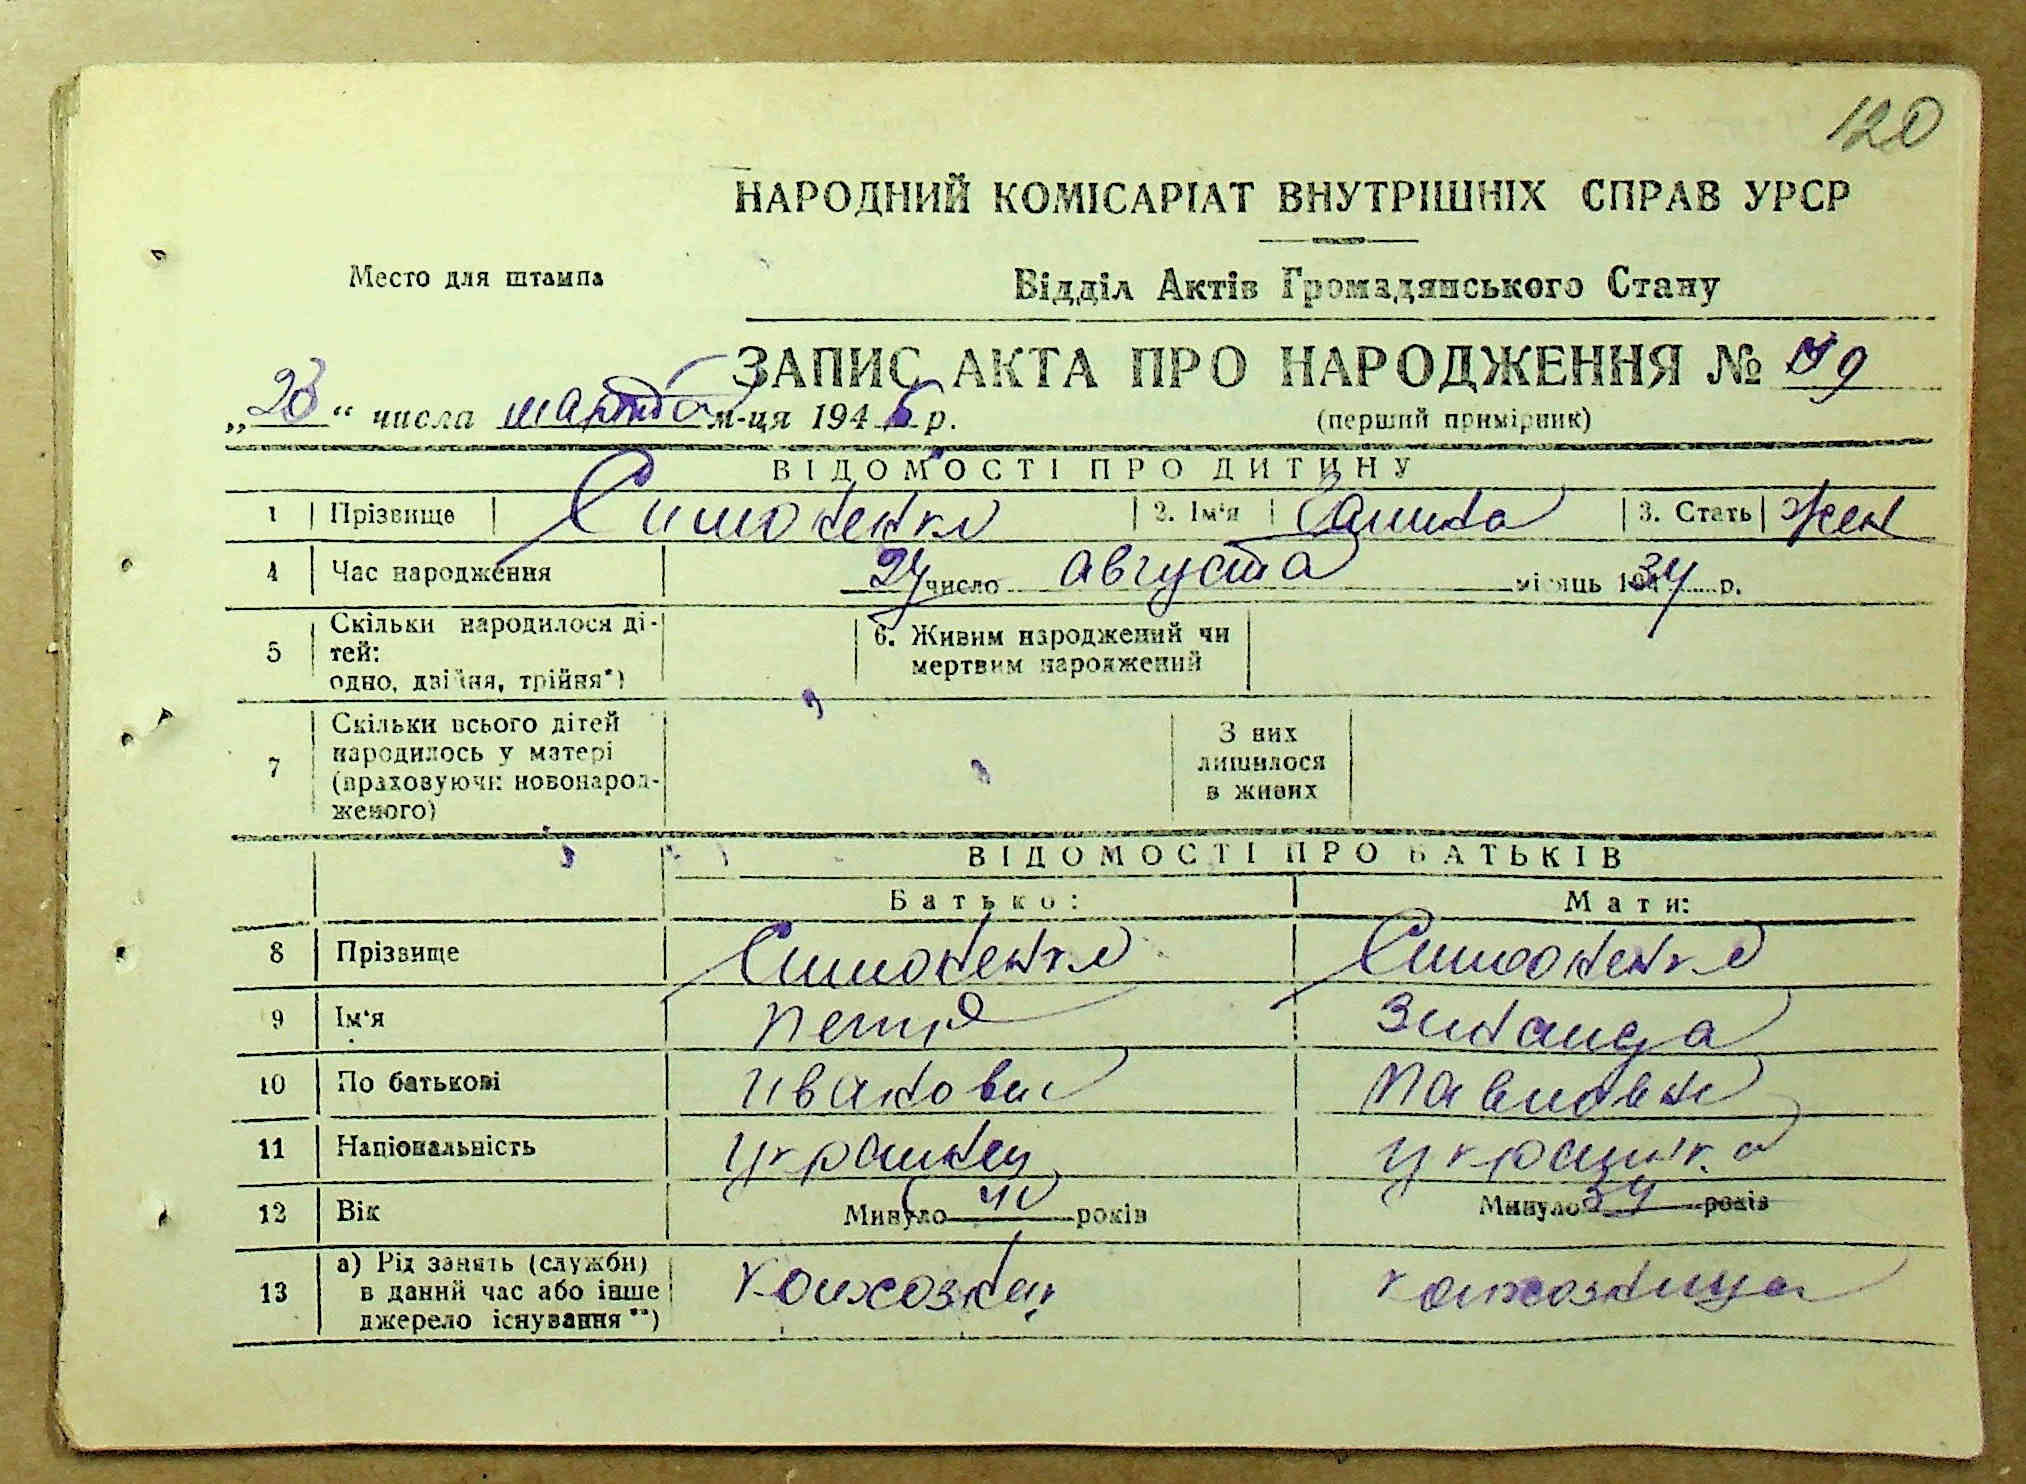 120
НАРОДНИЙ КОМІСАРІАТ ВНУТРІШНІХ СПРАВ УРСР
Место для штампа
Відділ Актів Громадянського Стану
ЗАПИС АКТА ПРО НАРОДЖЕННЯ №
„28“ числа марта м-ця 1945 р.
(перший примірник)
ВІДОМОСТІ ПРО ДИТИНУ
1 Прізвище Симоненко 2. Ім'я Галина 3. Стать жен
4 Час народження 24 число августа місяць 1934 р.
5 Скільки народилося ді-
тей:
одно, двійня, трійня*)
6. Живим народжений чи
мертвим народжений
7 Скільки всього дітей
народилось у матері
(враховуючи новонарод-
женого)
З них
лишилося
в живих
ВІДОМОСТІ ПРО БАТЬКІВ
Батько: Мати:
8 Прізвище Симоненко Симоненко
9 Ім'я Петр Зинаида
10 По батькові Иванович Павловн
11 Національність Украинец Украинка
12 Вік Минуло 40 років Минуло 34 років
13 а) Рід занять (служби)
в даний час або інше
джерело існування**)
колхозник колхозница